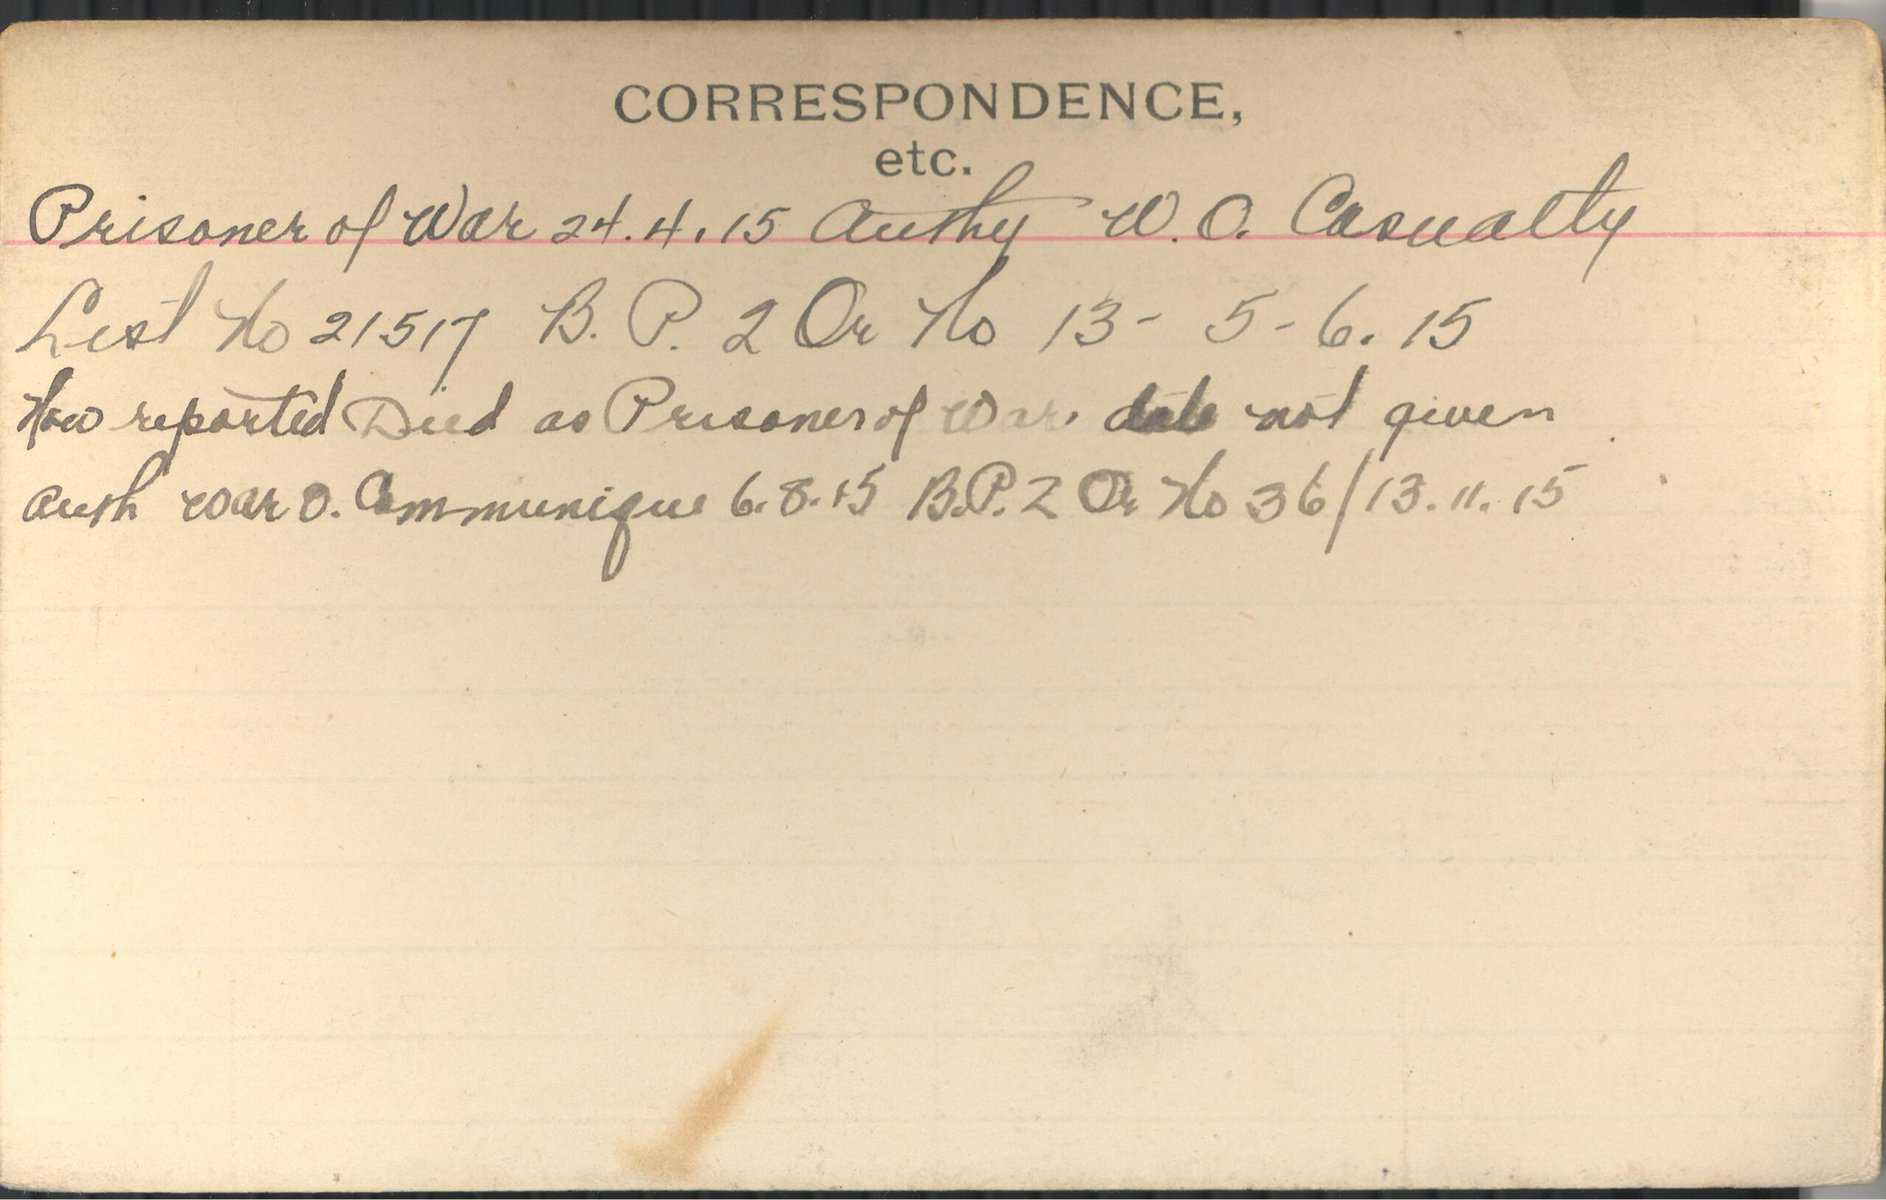 CORRESPONDENCE,
etc.
Prisoner of War 24.4.15 Authy W.O. Casualty
List No 21517 B.P. 2 Or No 13- 5-6.15
Now reported Died as Prisoner of War. date not given
Auth War O. Communique 6.8.15 B.P. 2 Or No 36/13.11.15